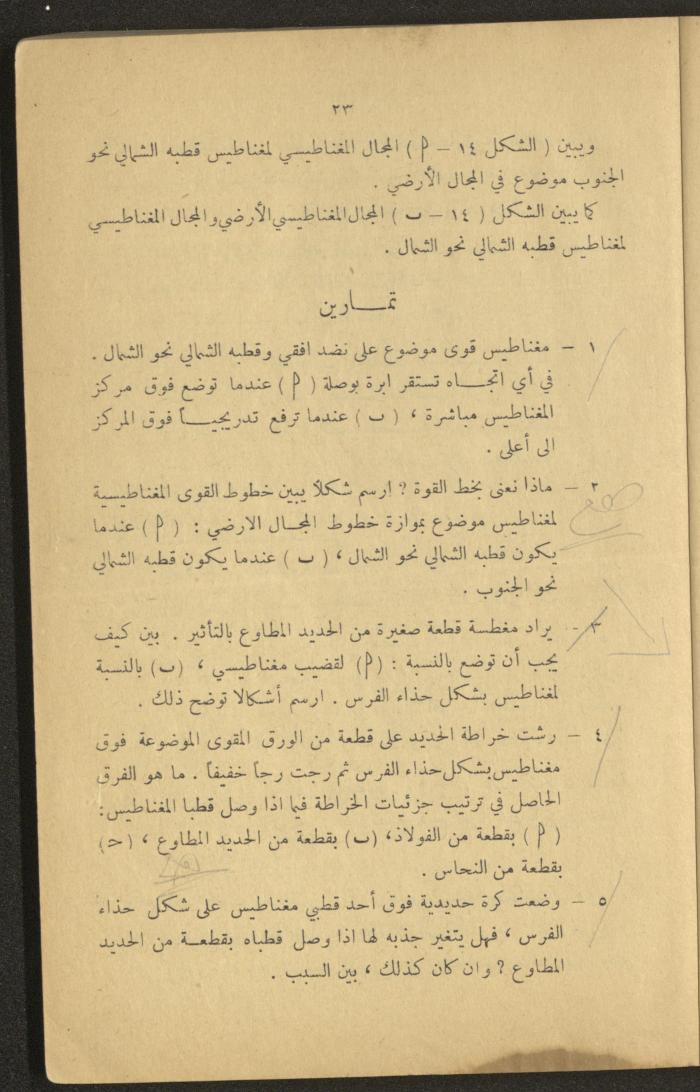 ٢٣
ويبين ( الشكل ١٤ — م ) المجال المغناطيسي لمغناطيس قطبه الشمالي نحو
الجنوب موضوع في المجال الأرضي .
كما يبين الشكل ( ١٤ — ب ) المجال المغناطيسي الأرضي والمجال المغناطيسي
لمغناطيس قطبه الشمالي نحو الشمال .
تمـــارين
١ — مغناطيس قوى موضوع على نضد افقي وقطبه الشمالي نحو الشمال .
في أي اتجـــاه تستقر ابرة بوصلة ( م ) عندما توضع فوق مركز
المغناطيس مباشرة ، ( ب ) عندما ترفع تدريجيـــاً فوق المركز
الى أعلى .
٢ — ماذا نعنى بخط القوة ? ارسم شكلاً يبين خطوط القوى المغناطيسية
لمغناطيس موضوع بموازة خطوط المجـال الارضي : ( م ) عندما
يكون قطبه الشمالي نحو الشمال ، ( ب ) عندما يكون قطبه الشمالي
نحو الجنوب .
٣ - يراد مغطسة قطعة صغيرة من الحديد المطاوع بالتأثير . بين كيف
يجب أن توضع بالنسبة : (م) لقضيب مغناطيسي ، (ب) بالنسبة
لمغناطيس بشكل حذاء الفرس . ارسم أشكالا توضح ذلك .
٤ — رشت خراطة الحديد على قطعة من الورق المقوى الموضوعة فوق
مغناطيس بشكل حذاء الفرس ثم رجت رجاً خفيفاً . ما هو الفرق
الحاصل في ترتيب جزئيات الخراطة فيما اذا وصل قطبا المغناطيس:
( م ) بقطعة من الفولاذ، (ب) بقطعة من الحديد المطاوع ، (حـ)
بقطعة من النحاس .
٥ — وضعت كرة حديدية فوق أحد قطبي مغناطيس على شكل حذاء
الفرس ، فهل يتغير جذبه لها اذا وصل قطباه بقطعـة من الحديد
المطاوع ? وان كان كذلك ، بين السبب .